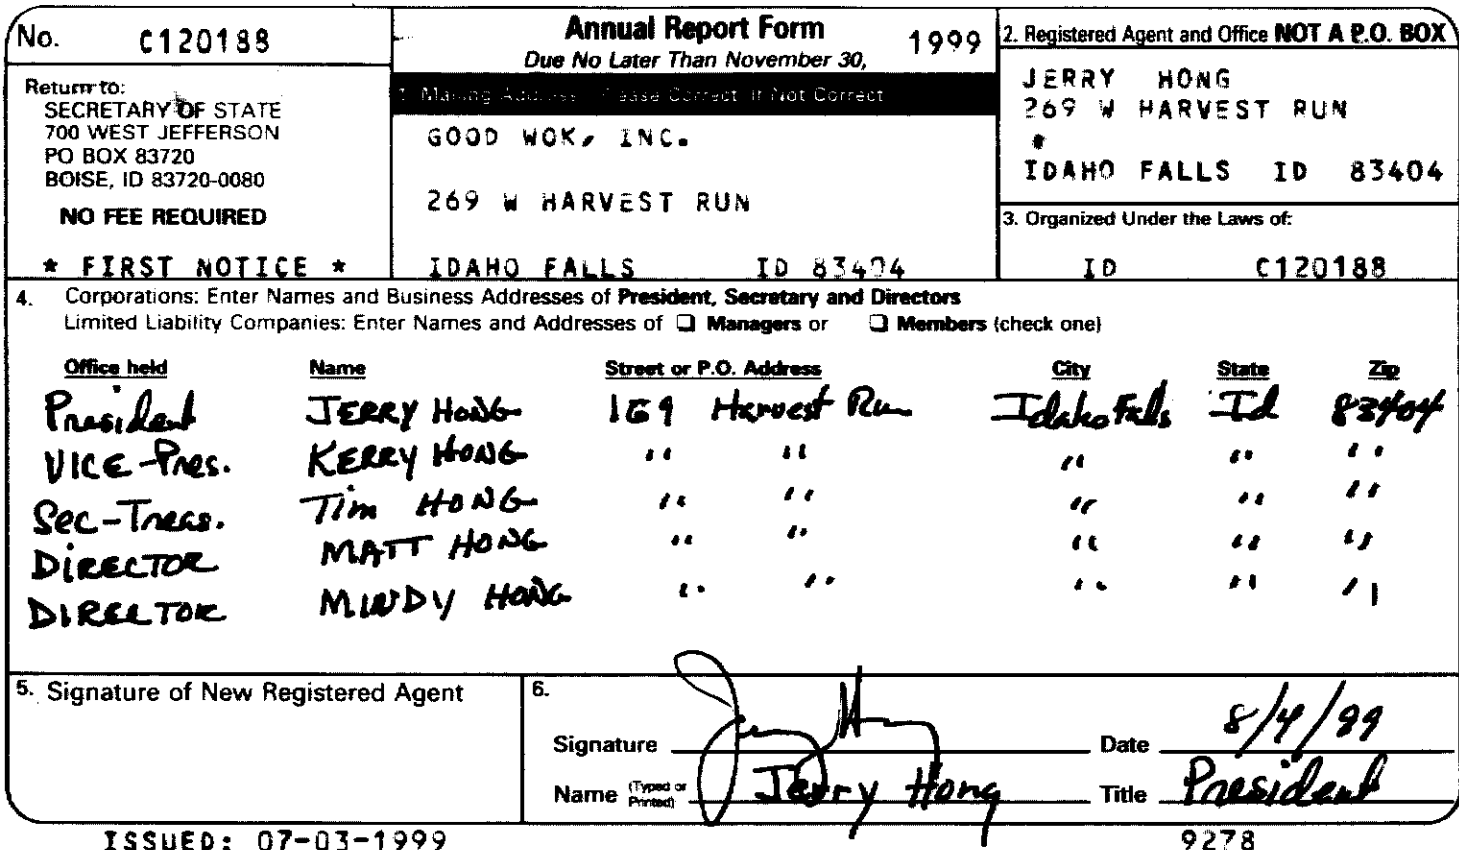 No. C120188
Annual Report Form 1999
Due No Later Than November 30,
Return to:
SECRETARY OF STATE
700 WEST JEFFERSON
PO BOX 83720
BOISE, ID 83720-0080
NO FEE REQUIRED
* FIRST NOTICE *
1. Mailing Address - Please Correct If Not Correct
GOOD WOK, INC.
269 W HARVEST RUN
IDAHO FALLS ID 83404
2. Registered Agent and Office NOT A P.O. BOX
JERRY HONG
269 W HARVEST RUN
IDAHO FALLS ID 83404
3. Organized Under the Laws of:
ID C120188
4. Corporations: Enter Names and Business Addresses of President, Secretary and Directors
Limited Liability Companies: Enter Names and Addresses of ☐ Managers or ☐ Members (check one)
Office held Name Street or P.O. Address City State Zip
President JERRY HONG 169 Harvest Run Idaho Falls Id 83404
VICE-Pres. KERRY HONG " " " " "
Sec-Treas. Tim HONG " " " " "
DIRECTOR MATT HONG " " " " "
DIRECTOR MINDY HONG " " " " "
5. Signature of New Registered Agent
6.
Signature Jerry Hong Date 8/4/99
Name (Typed or Printed) Jerry Hong Title President
ISSUED: 07-03-1999 9278